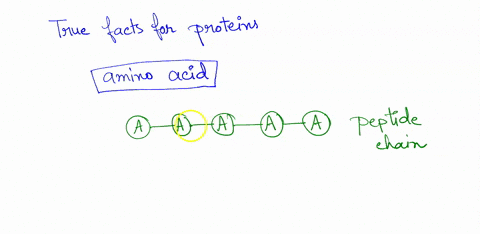 True facts for proteins
amino acid
A A A A A peptide
chain